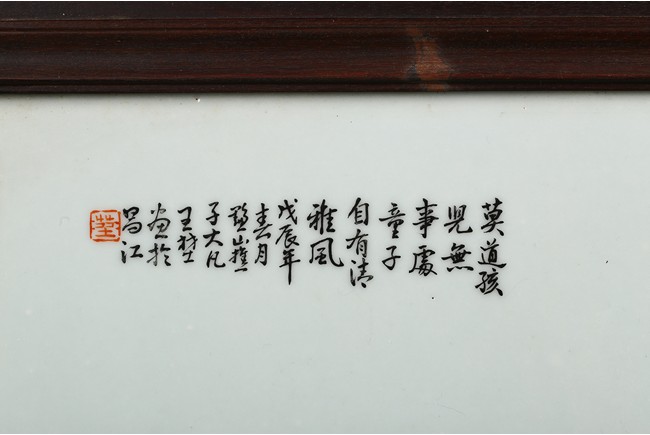 莫道孩
兒無
事處
童子
自有清
雅風
戊辰年
春月
黟山樵
子大凡
王堃
畫於
昌江
堃